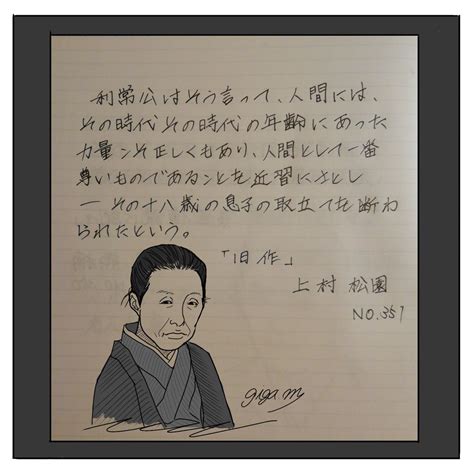 利常公はそう言って、人間には、
その時代その時代の年齢にあった
力量こそ正しくもあり、人間として一番
尊いものであることを近習にさとし
ー その十八歳の息子の取立てを断わ
られたという。
「旧作」
上村 松園
NO.357
giga m